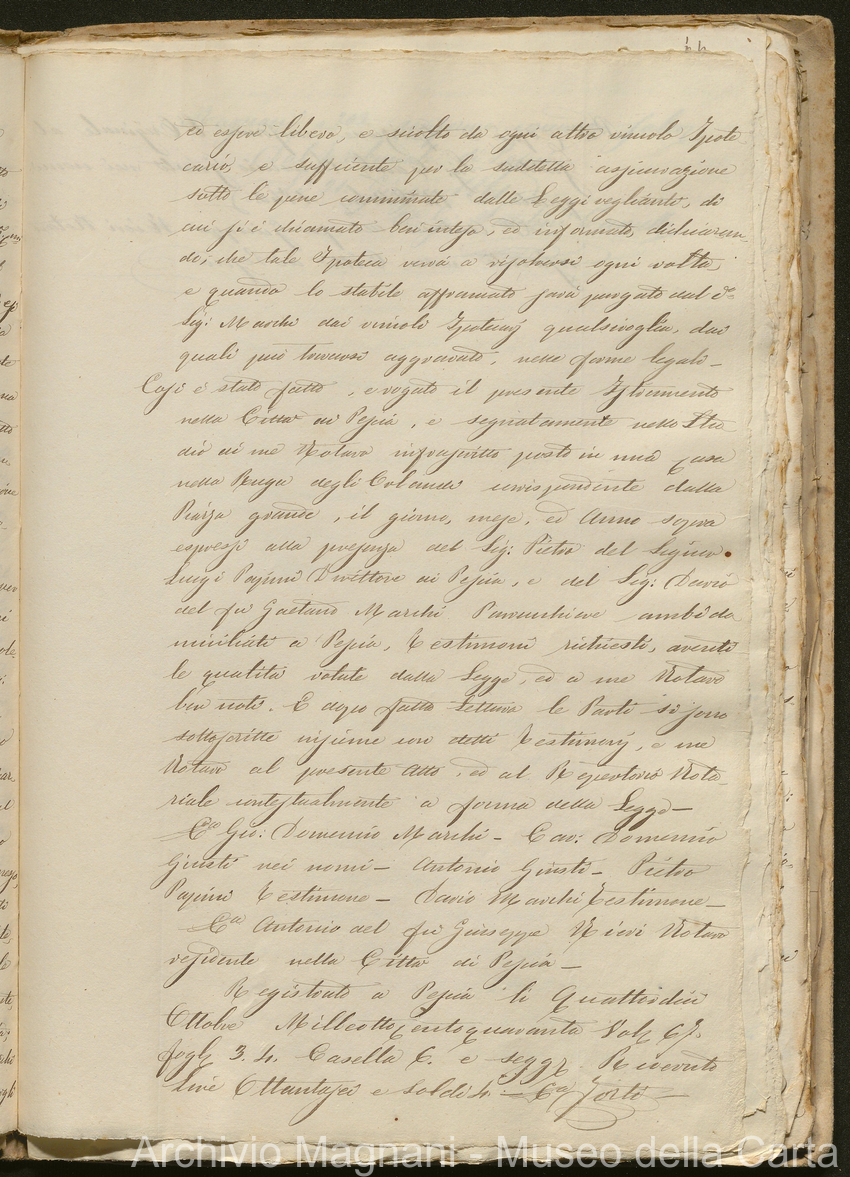 ed essere libero, e sciolto da ogni altro vincolo Ipote
cario, e sufficiente per la suddetta assicurazione
sotto le pene comminate dalle Leggi veglianti, di
cui si è chiamato ben inteso, ed informato, dichiaran-
do, che tale Ipoteca verrà a risolversi ogni volta,
e quando lo stabile affrancato sarà purgato dal d.°
Sig: Marchi dai vincoli Ipotecarj qualsivoglia, dai
quali può trovarsi aggravato, nelle forme legali_
Così è stato fatto, e rogato il presente Istrumento
nella Città di Pescia, e segnatamente nello Stu
dio di me Notaro infrascritto posto in una Casa
nella Ruga degli Orlandi corrispondente dalla
Piazza grande, il giorno, mese, ed Anno sopra
espressi alla presenza del Sig: Pietro del Signor
Luigi Papini Direttore di Pescia, e del Sig: Davio
del fu Gaetano Marchi Parrucchiere ambi do
miciliati a Pescia, Testimoni richiesti, aventi
le qualità volute dalla Legge, ed a me Notaro
ben noti. E dopo fatto Lettura le Parti si sono
sottoscritte insieme con detti Testimonj, e me
Notaro al presente Atto, ed al Repertorio Nota-
riale contestualmente a forma della Legge_
C.a Gio: Domenico Marchi - Cav: Domenico
Giusti nei nomi - Antonio Giusti - Pietro
Papini Testimone - Davio Marchi Testimone_
C.a Antonio del fu Giuseppe Nieri Notaro
residente nella Città di Pescia_
Registrato a Pescia li Quattordici
Ottobre Milleottocentoquaranta Vol. 67.
fogl. 34. Casella 6. e segg. Ricevuto
Lire Ottantasei e soldi 4. - C.a Forti -
Archivio Magnani - Museo della Carta